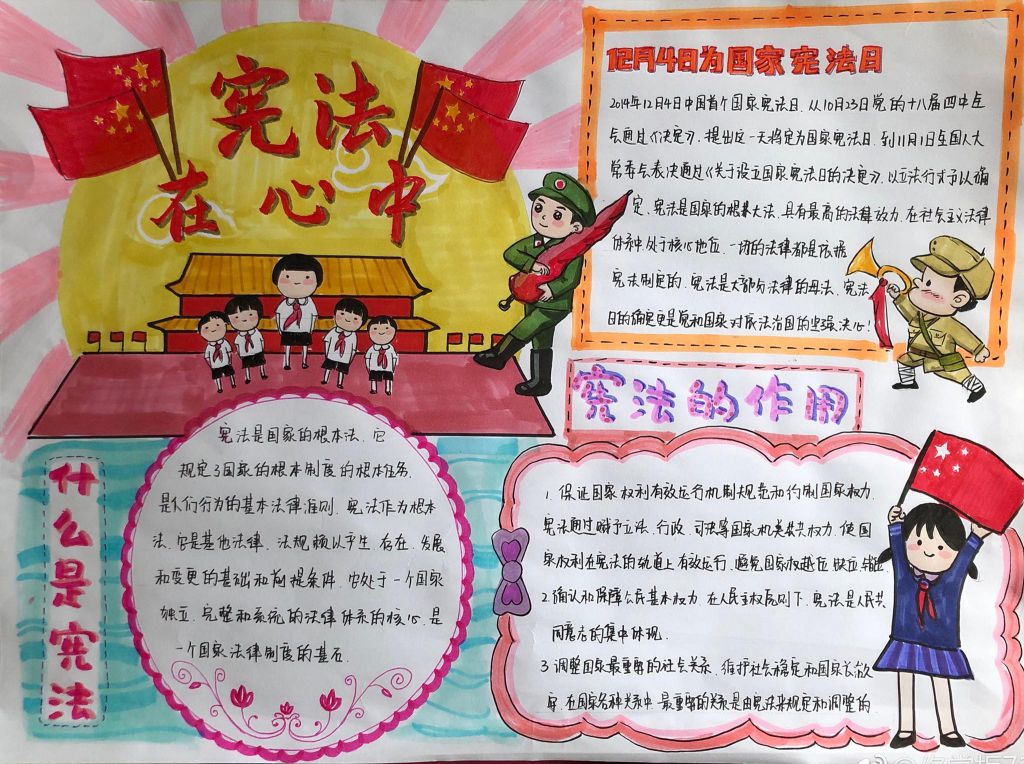 宪法
在心中
12月4日为国家宪法日
2014年12月4日中国首个国家宪法日、从10月23日党的十八届四中全
会通过《决定》、提出这一天将定为国家宪法日、到11月1日全国人大
常委会表决通过《关于设立国家宪法日的决定》、以立法形式予以确
定、宪法是国家的根本大法、具有最高的法律效力、在社会主义法律
体系中处于核心地位、一切的法律都是依据
宪法制定的、宪法是大部分法律的母法、宪法
日的确定更是党和国家对依法治国的坚强决心!
什么是宪法
宪法是国家的根本法、它
规定了国家的根本制度的根本任务、
是人们行为的基本法律准则、宪法作为根本
法、它是其他法律、法规赖以产生、存在、发展
和变更的基础和前提条件、它处于一个国家
独立、完整和系统的法律体系的核心、是
一个国家法律制度的基石、
宪法的作用
1、保证国家权利有效运行机制规范和约制国家权力、
宪法通过赋予立法、行政、司法等国家机关公共权力、使国
家权利在宪法的轨道上有效运行、避免国家权越位 缺位 错位
2、确认和保障公民基本权力、在人民主权原则下、宪法是人民共
同意志的集中体现、
3、调整国家最重要的社会关系、维护社会稳定和国家长治久
安、在国家各种关系中、最重要的关系是由宪法来规定和调整的